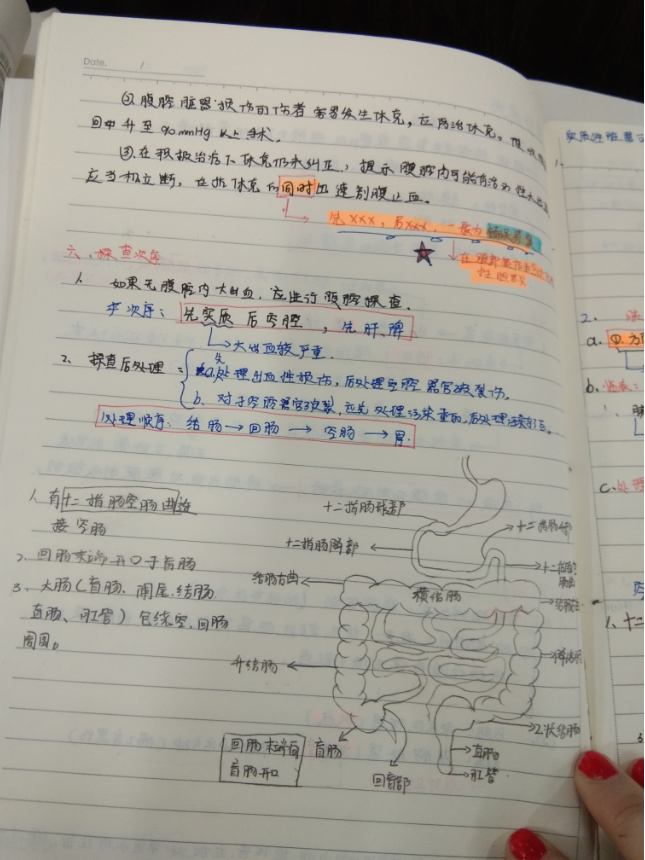 Date.
②腹腔脏器损伤的伤者容易发生休克，应防治休克。
回中升至90mmHg以上手术。
③在积极治疗下休克仍未纠正，提示腹腔内可能有活
应当机立断，在抗休克的同时迅速剖腹止血。
先XXX，后XXX，一般为
六、探查次序
1. 如果无腹腔内大出血，应进行腹腔探查。
次序：先实质 后空腔，先肝、脾
大出血较严重.
2、探查后处理
a.先处理出血性损伤，后处理空腔器官破裂伤。
b. 对于空腔器官破裂，应先处理污染重的，后处理污染轻的。
处理顺序：结肠→回肠→空肠→胃.
1. 有十二指肠空肠曲连
接空肠
2、回肠末端开口于盲肠
3、大肠（盲肠、阑尾、结肠
直肠、肛管）包绕空、回肠
周围。
十二指肠球部
十二指肠降部
结肠右曲
横结肠
升结肠
降结
乙状结肠
直肠
肛管
盲肠
回盲部
回肠末端向
盲肠开口
实质性脏器
1.
2.
a.
b.
c.处
1、十二
3